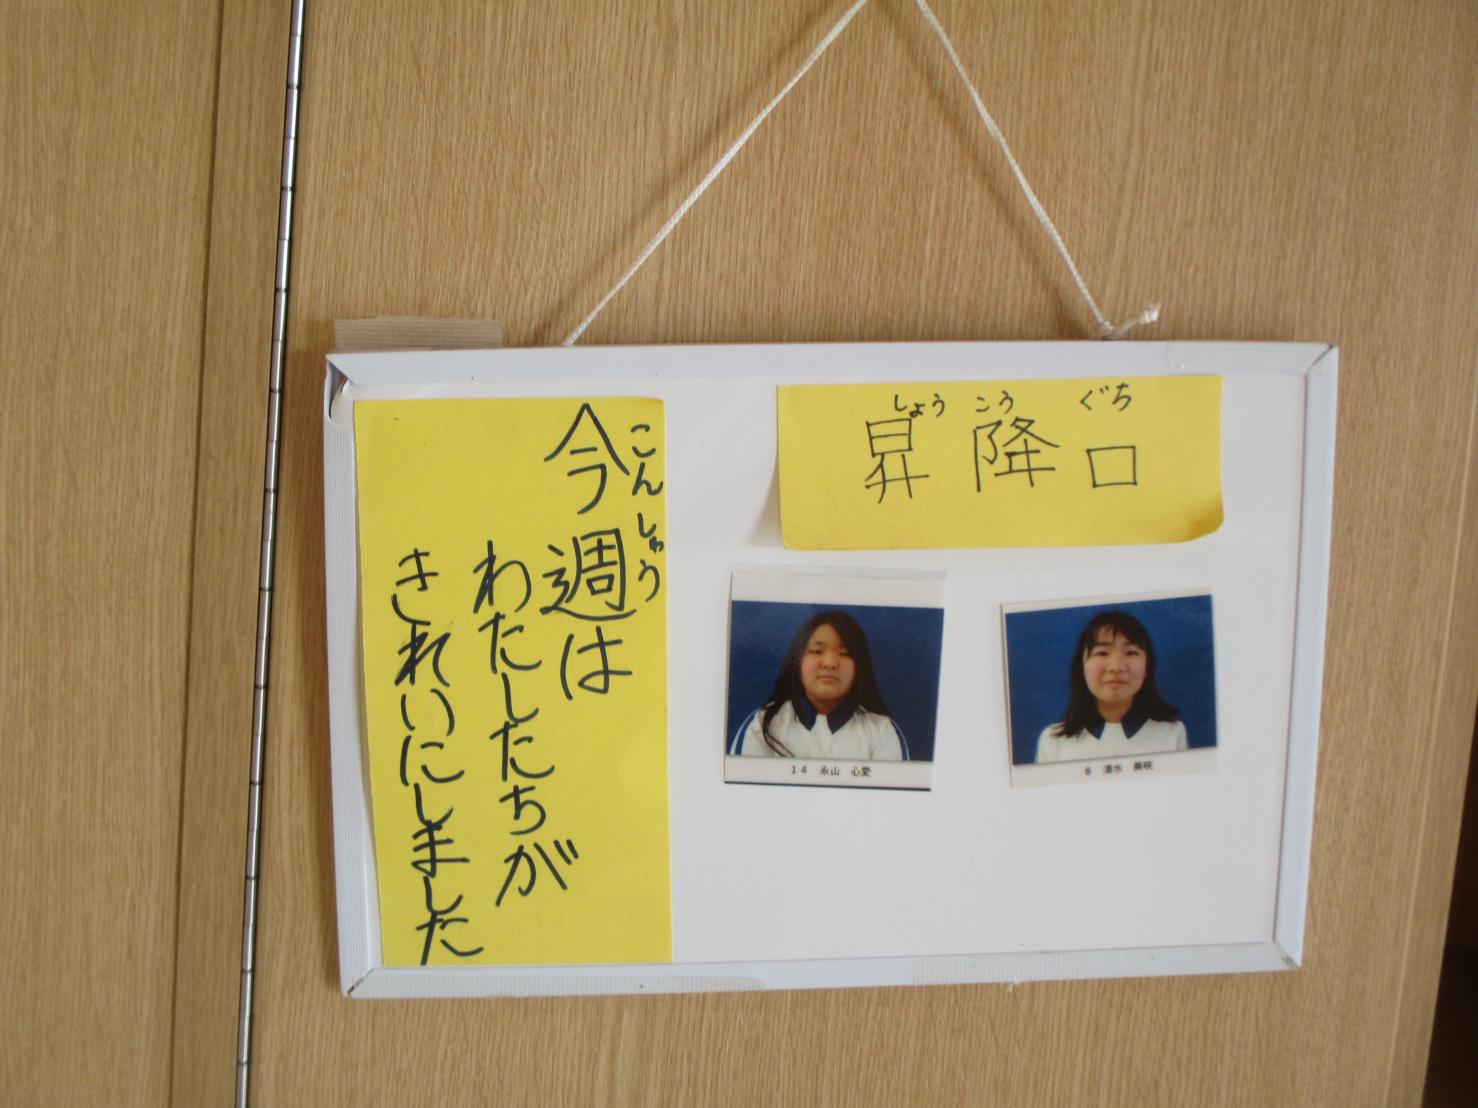 しょうこうぐち
昇降口
こんしゅう
今週は
わたしたちが
きれいにしました
14 永山 心愛
8 清水 美咲